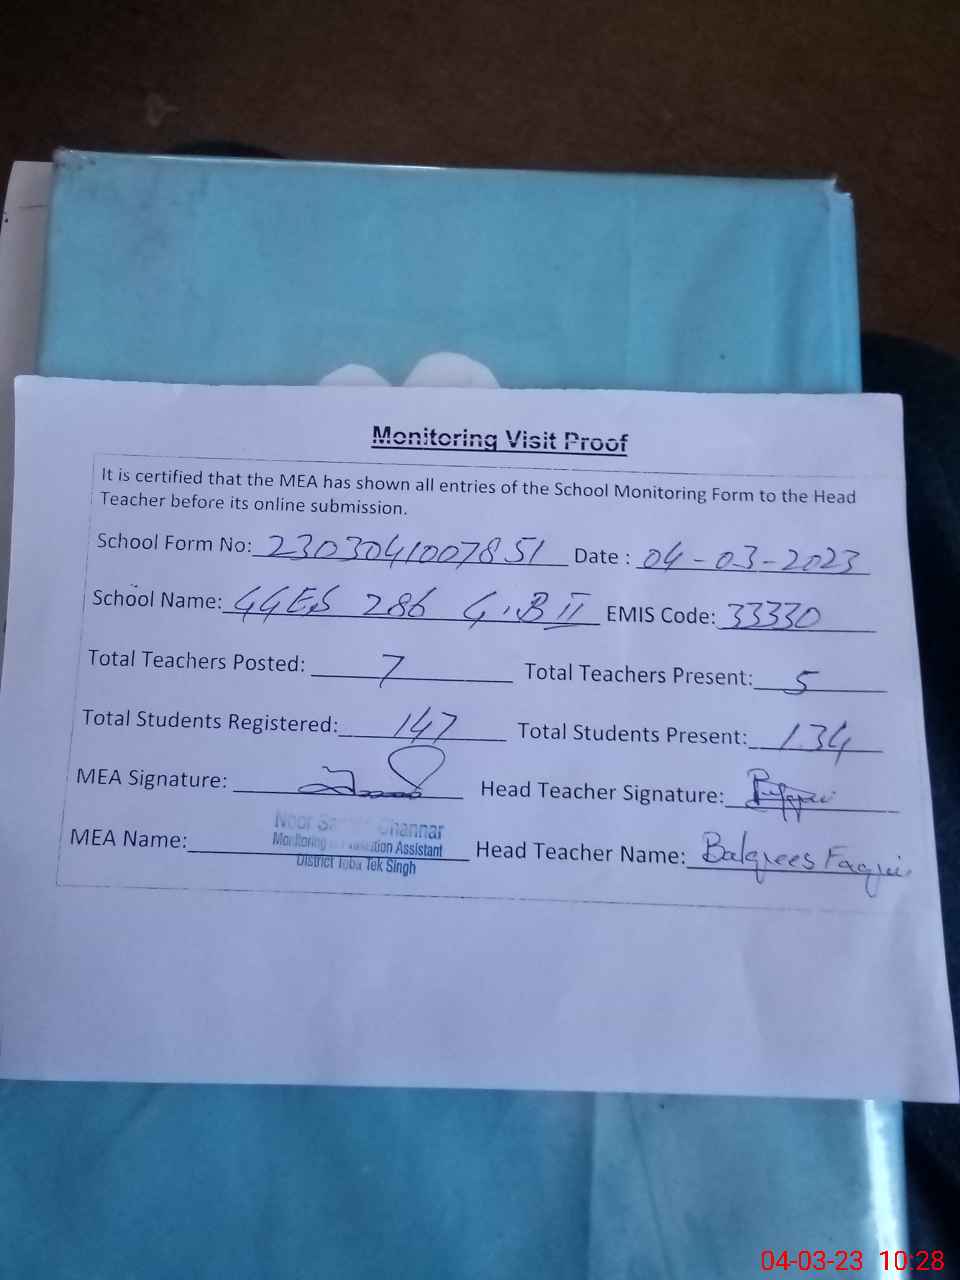 Monitoring Visit Proof
It is certified that the MEA has shown all entries of the School Monitoring Form to the Head
Teacher before its online submission.
School Form No: 2303041007851 Date : 04-03-2023
School Name: GGES 286 G.B II EMIS Code: 33330
Total Teachers Posted: 7 Total Teachers Present: 5
Total Students Registered: 147 Total Students Present: 134
MEA Signature: Head Teacher Signature:
Noor Channar
Monitoring Assistant
District Toba Tek Singh
MEA Name: Head Teacher Name: Balqees
04-03-23 10:28